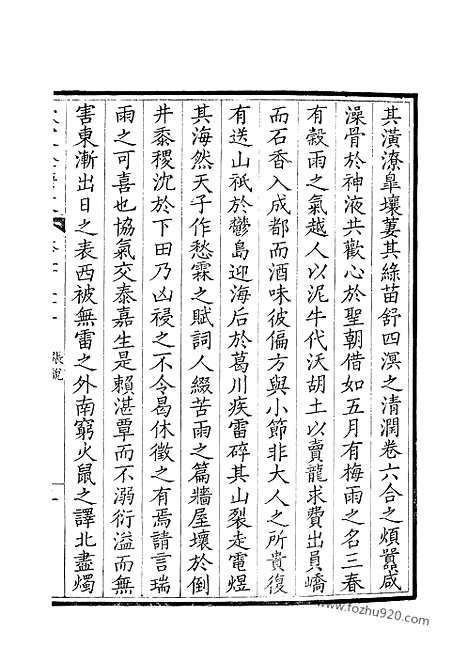 其潢潦臯壤萋其綠苗舒四溟之清潤卷六合之煩嚣咸
澡骨於神液共歡心於聖朝借如五月有梅雨之名三春
有穀雨之氣越人以泥牛代沃胡土以賣龍求費出員嶠
而石香入成都而酒味彼偏方與小節非大人之所貴復
有送山祇於鬱島迎海后於葛川疾雷碎其山裂走電煜
其海然天子作愁霖之賦詞人綴苦雨之篇牆屋壞於倒
井黍稷沈於下田乃凶祲之不令曷休徵之有焉請言瑞
雨之可喜也協氣交泰嘉生是賴湛覃而不溺衍溢而無
害東漸出日之表西被無雷之外南窮火鼠之譯北盡燭
張說
www.fozhu920.com